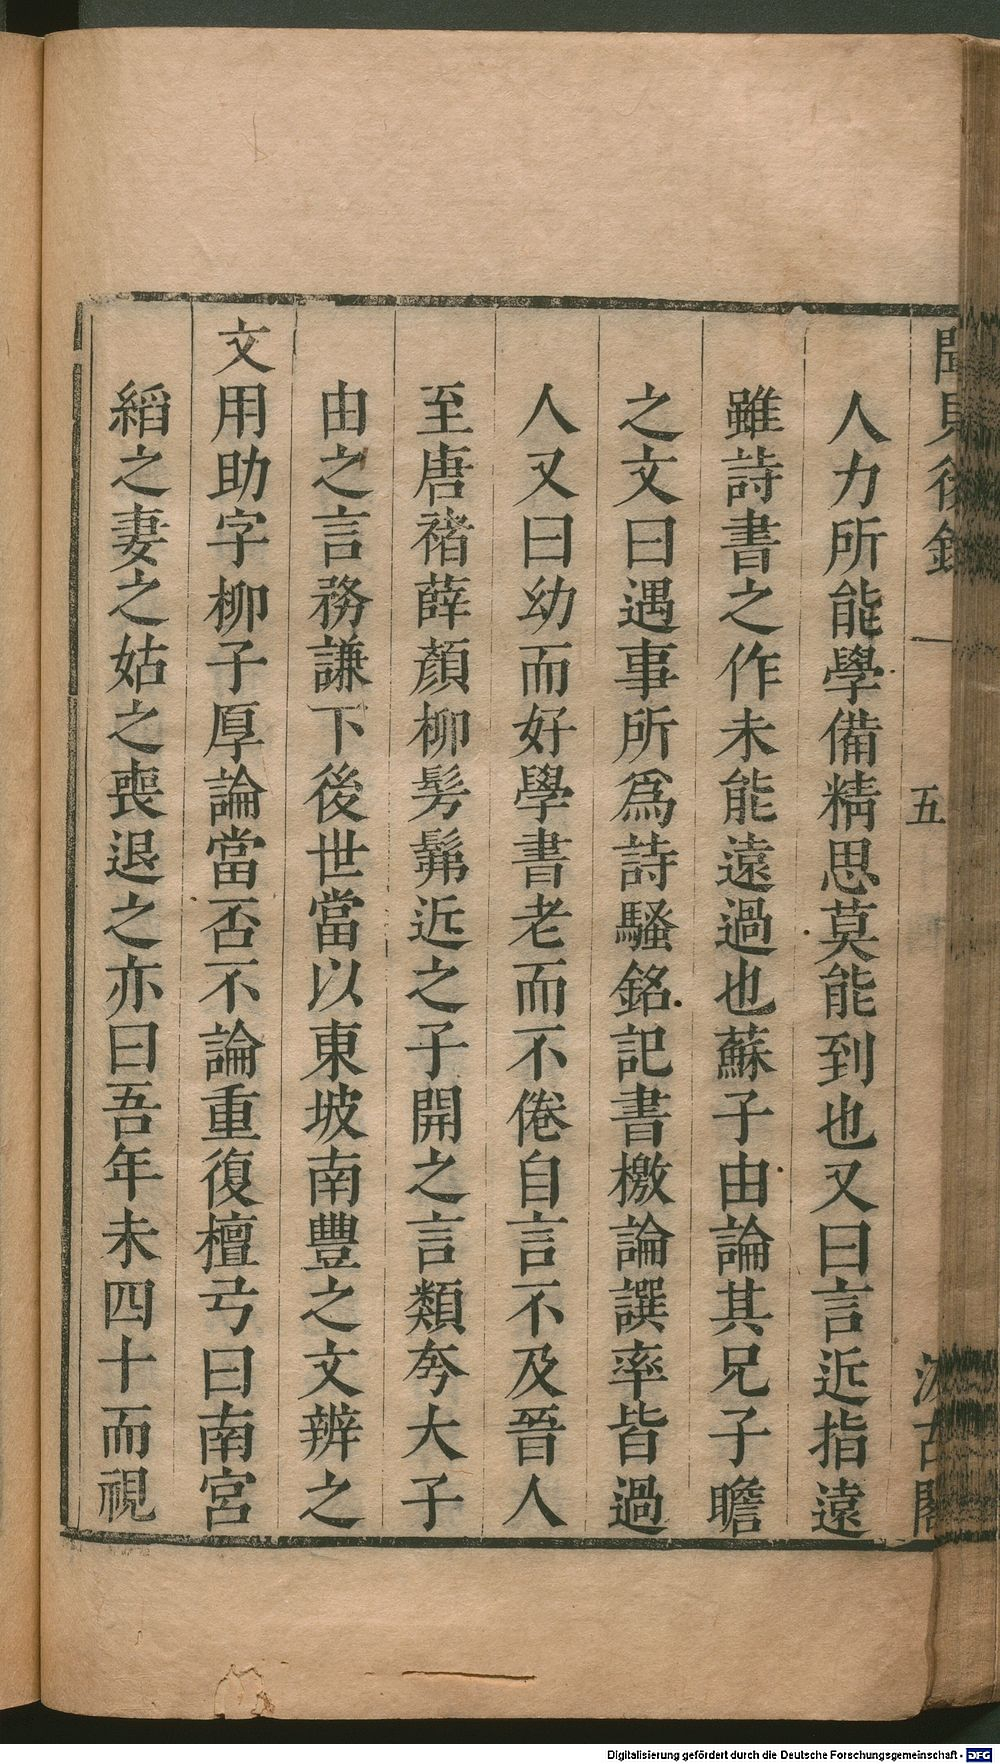 聞見後錄
五
汲古閣
人力所能學備精思莫能到也又曰言近指遠
雖詩書之作未能遠過也蘇子由論其兄子瞻
之文曰遇事所爲詩騷銘記書檄論譔率皆過
人又曰幼而好學書老而不倦自言不及晉人
至唐褚薛顏柳髣髴近之子開之言類夸大子
由之言務謙下後世當以東坡南豐之文辨之
文用助字柳子厚論當否不論重復檀弓曰南宮
縚之妻之姑之喪退之亦曰吾年未四十而視
Digitalisierung gefördert durch die Deutsche Forschungsgemeinschaft - DFG